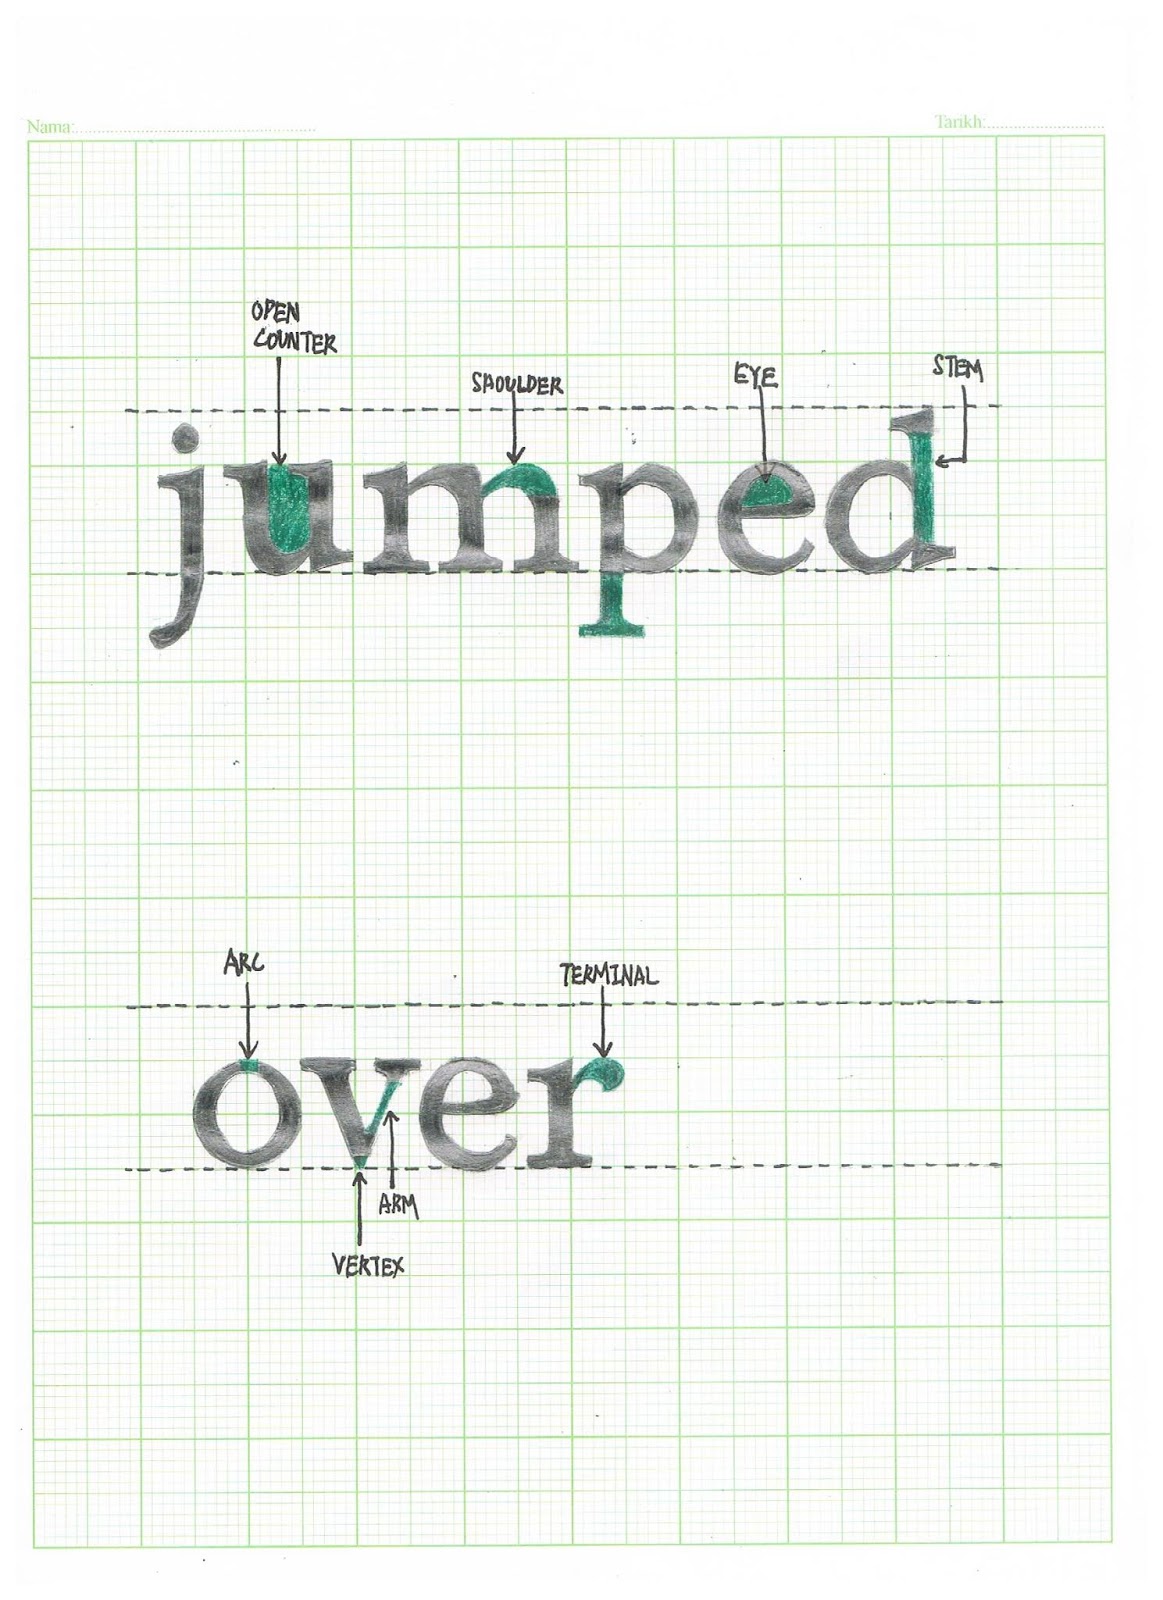 Nama:
Tarikh:
OPEN
COUNTER
SHOULDER
EYE
STEM
jumped
ARC
TERMINAL
over
ARM
VERTEX